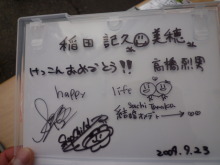 稲田 記久 美穂
けっこんおめでとう!!
高橋
happy life
Sachi Tanaka
結婚オメデト
2009.9.23